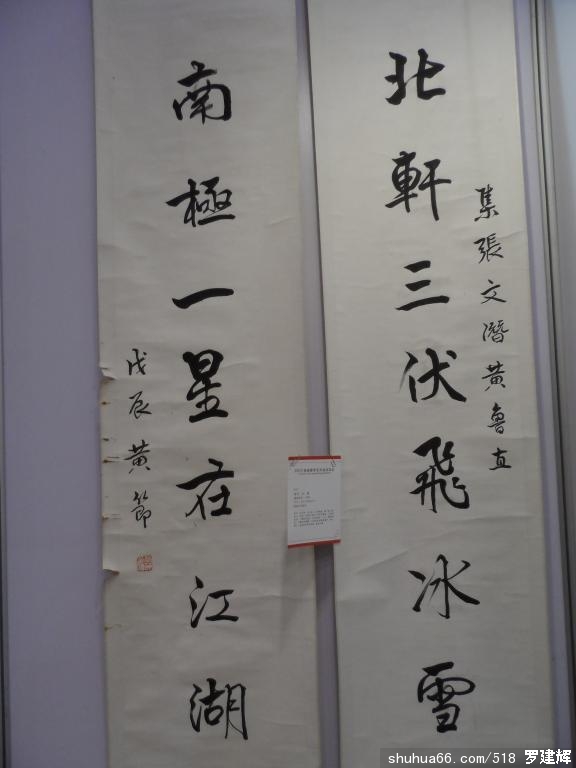 北軒三伏飛冰雪
集張文潛黄魯直
南極一星在江湖
戊辰黄節
shuhua66.com/518 罗建辉